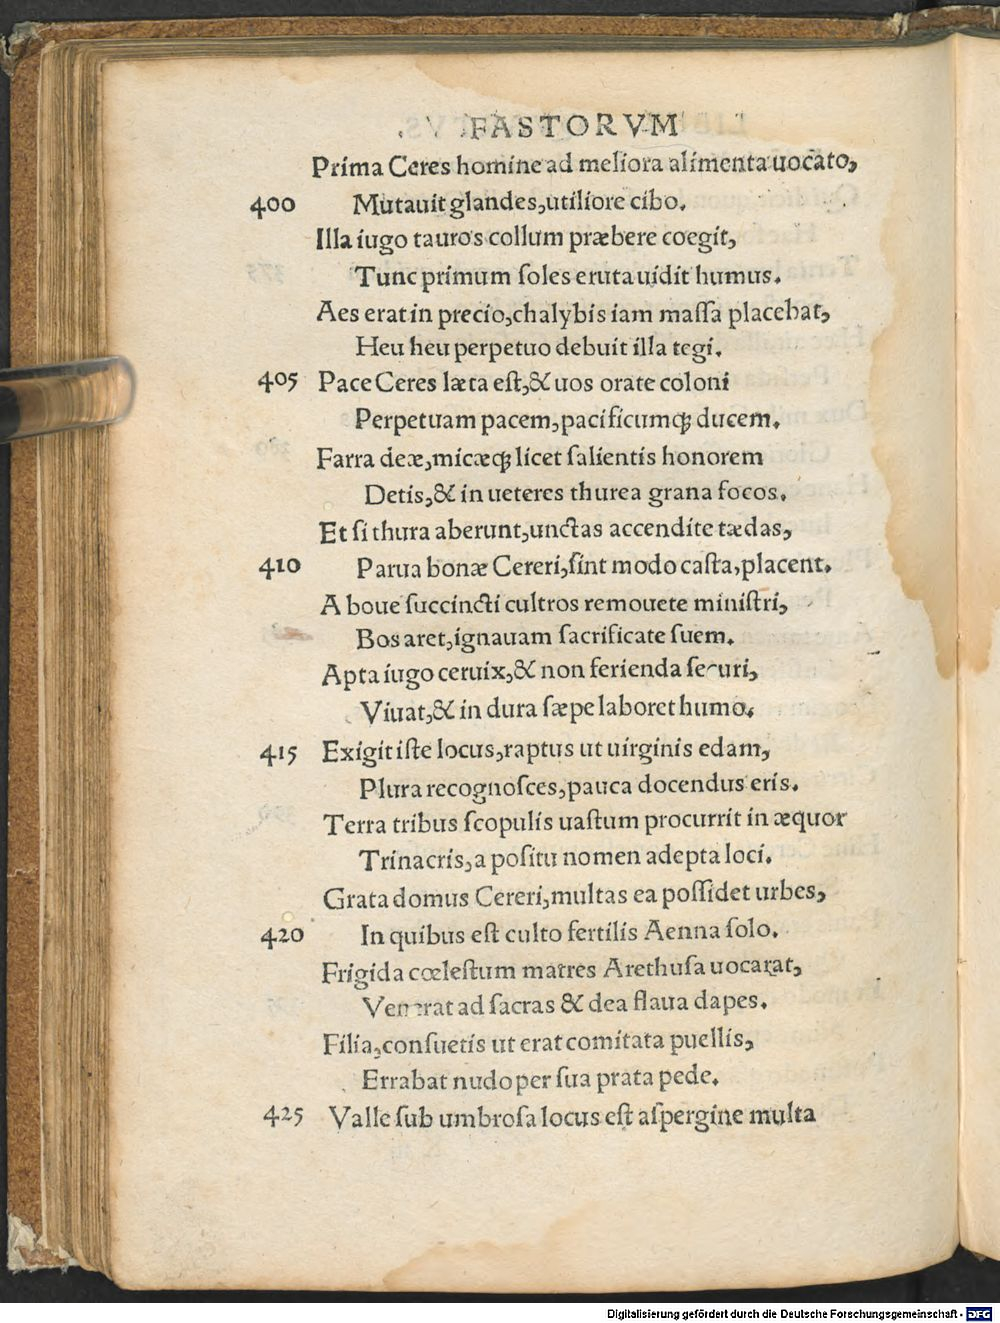 FASTORVM
Prima Ceres homine ad meliora alimenta uocato,
400 Mutauit glandes, utiliore cibo.
Illa iugo tauros collum præbere coegit,
Tunc primum soles eruta uidit humus.
Aes erat in precio, chalybis iam massa placebat,
Heu heu perpetuo debuit illa tegi.
405 Pace Ceres læta est, & uos orate coloni
Perpetuam pacem, pacificumq; ducem.
Farra deæ, micæq; licet salientis honorem
Detis, & in ueteres thurea grana focos.
Et si thura aberunt, unctas accendite tædas,
410 Parua bonæ Cereri, sint modo casta, placent.
A boue succincti cultros remouete ministri,
Bos aret, ignauam sacrificate suem.
Apta iugo ceruix, & non ferienda securi,
Viuat, & in dura sæpe laboret humo.
415 Exigit iste locus, raptus ut uirginis edam,
Plura recognosces, pauca docendus eris.
Terra tribus scopulis uastum procurrit in æquor
Trinacris, a positu nomen adepta loci.
Grata domus Cereri, multas ea possidet urbes,
420 In quibus est culto fertilis Aenna solo.
Frigida cœlestum matres Arethusa uocarat,
Venerat ad sacras & dea flaua dapes.
Filia, consuetis ut erat comitata puellis,
Errabat nudo per sua prata pede.
425 Valle sub umbrosa locus est aspergine multa
Digitalisierung gefördert durch die Deutsche Forschungsgemeinschaft - DFG